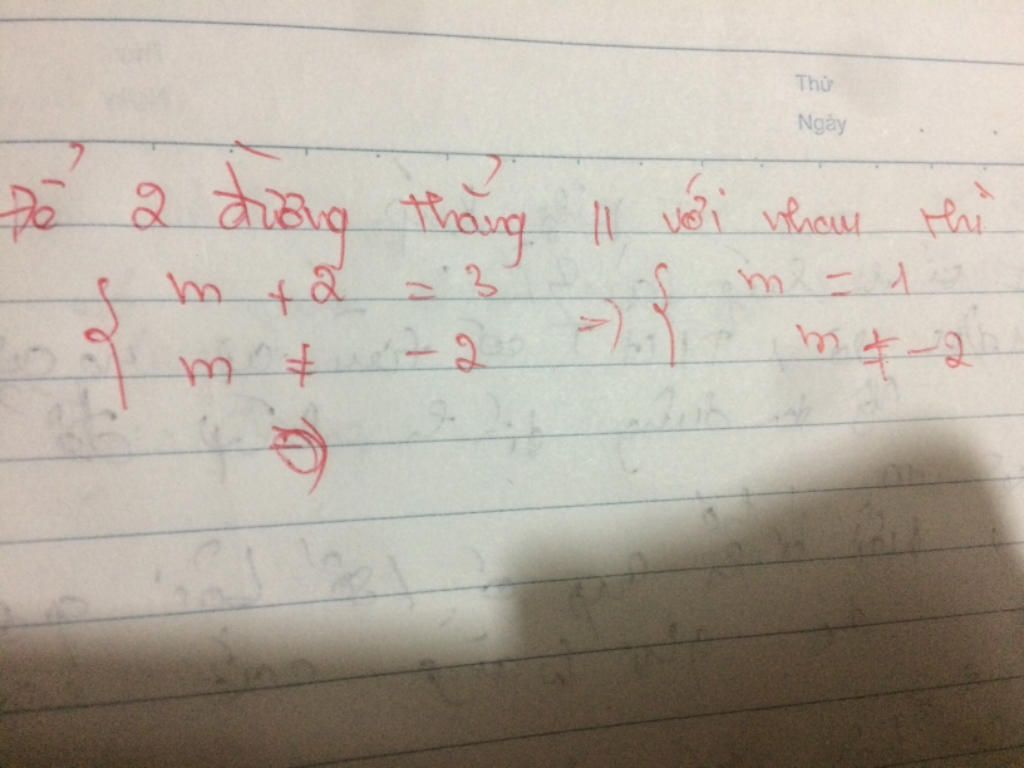 Thứ
Ngày
Để 2 đường thẳng // với nhau thì
{ m + 2 = 3 => { m = 1
m ≠ -2 m ≠ -2